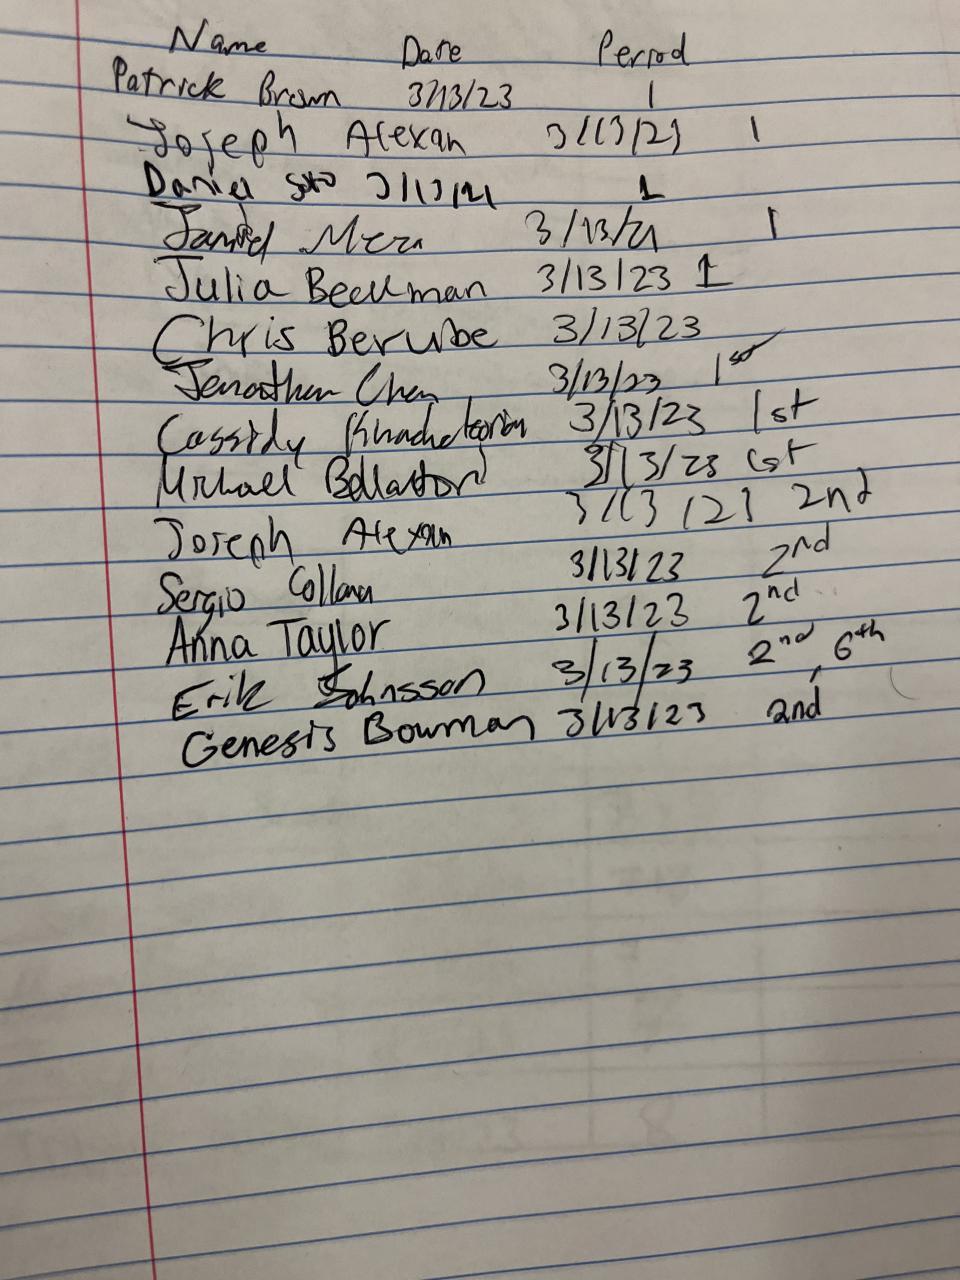 Name Date Period
Patrick Brown 3/13/23 1
Joseph Alexan 3/13/23 1
Daniel Soto 3/13/21 1
3/13/21 1
Julia Beckman 3/13/23 1
Chris Berube 3/13/23
Jonathan Chen 3/13/23 1st
Cassidy 3/13/23 1st
Michael 3/13/23 1st
Joseph Alexan 3/13/23 2nd
Sergio 3/13/23 2nd
Anna Taylor 3/13/23 2nd
Erik Johnsson 3/13/23 2nd, 6th
Genesis Bowman 3/13/23 2nd